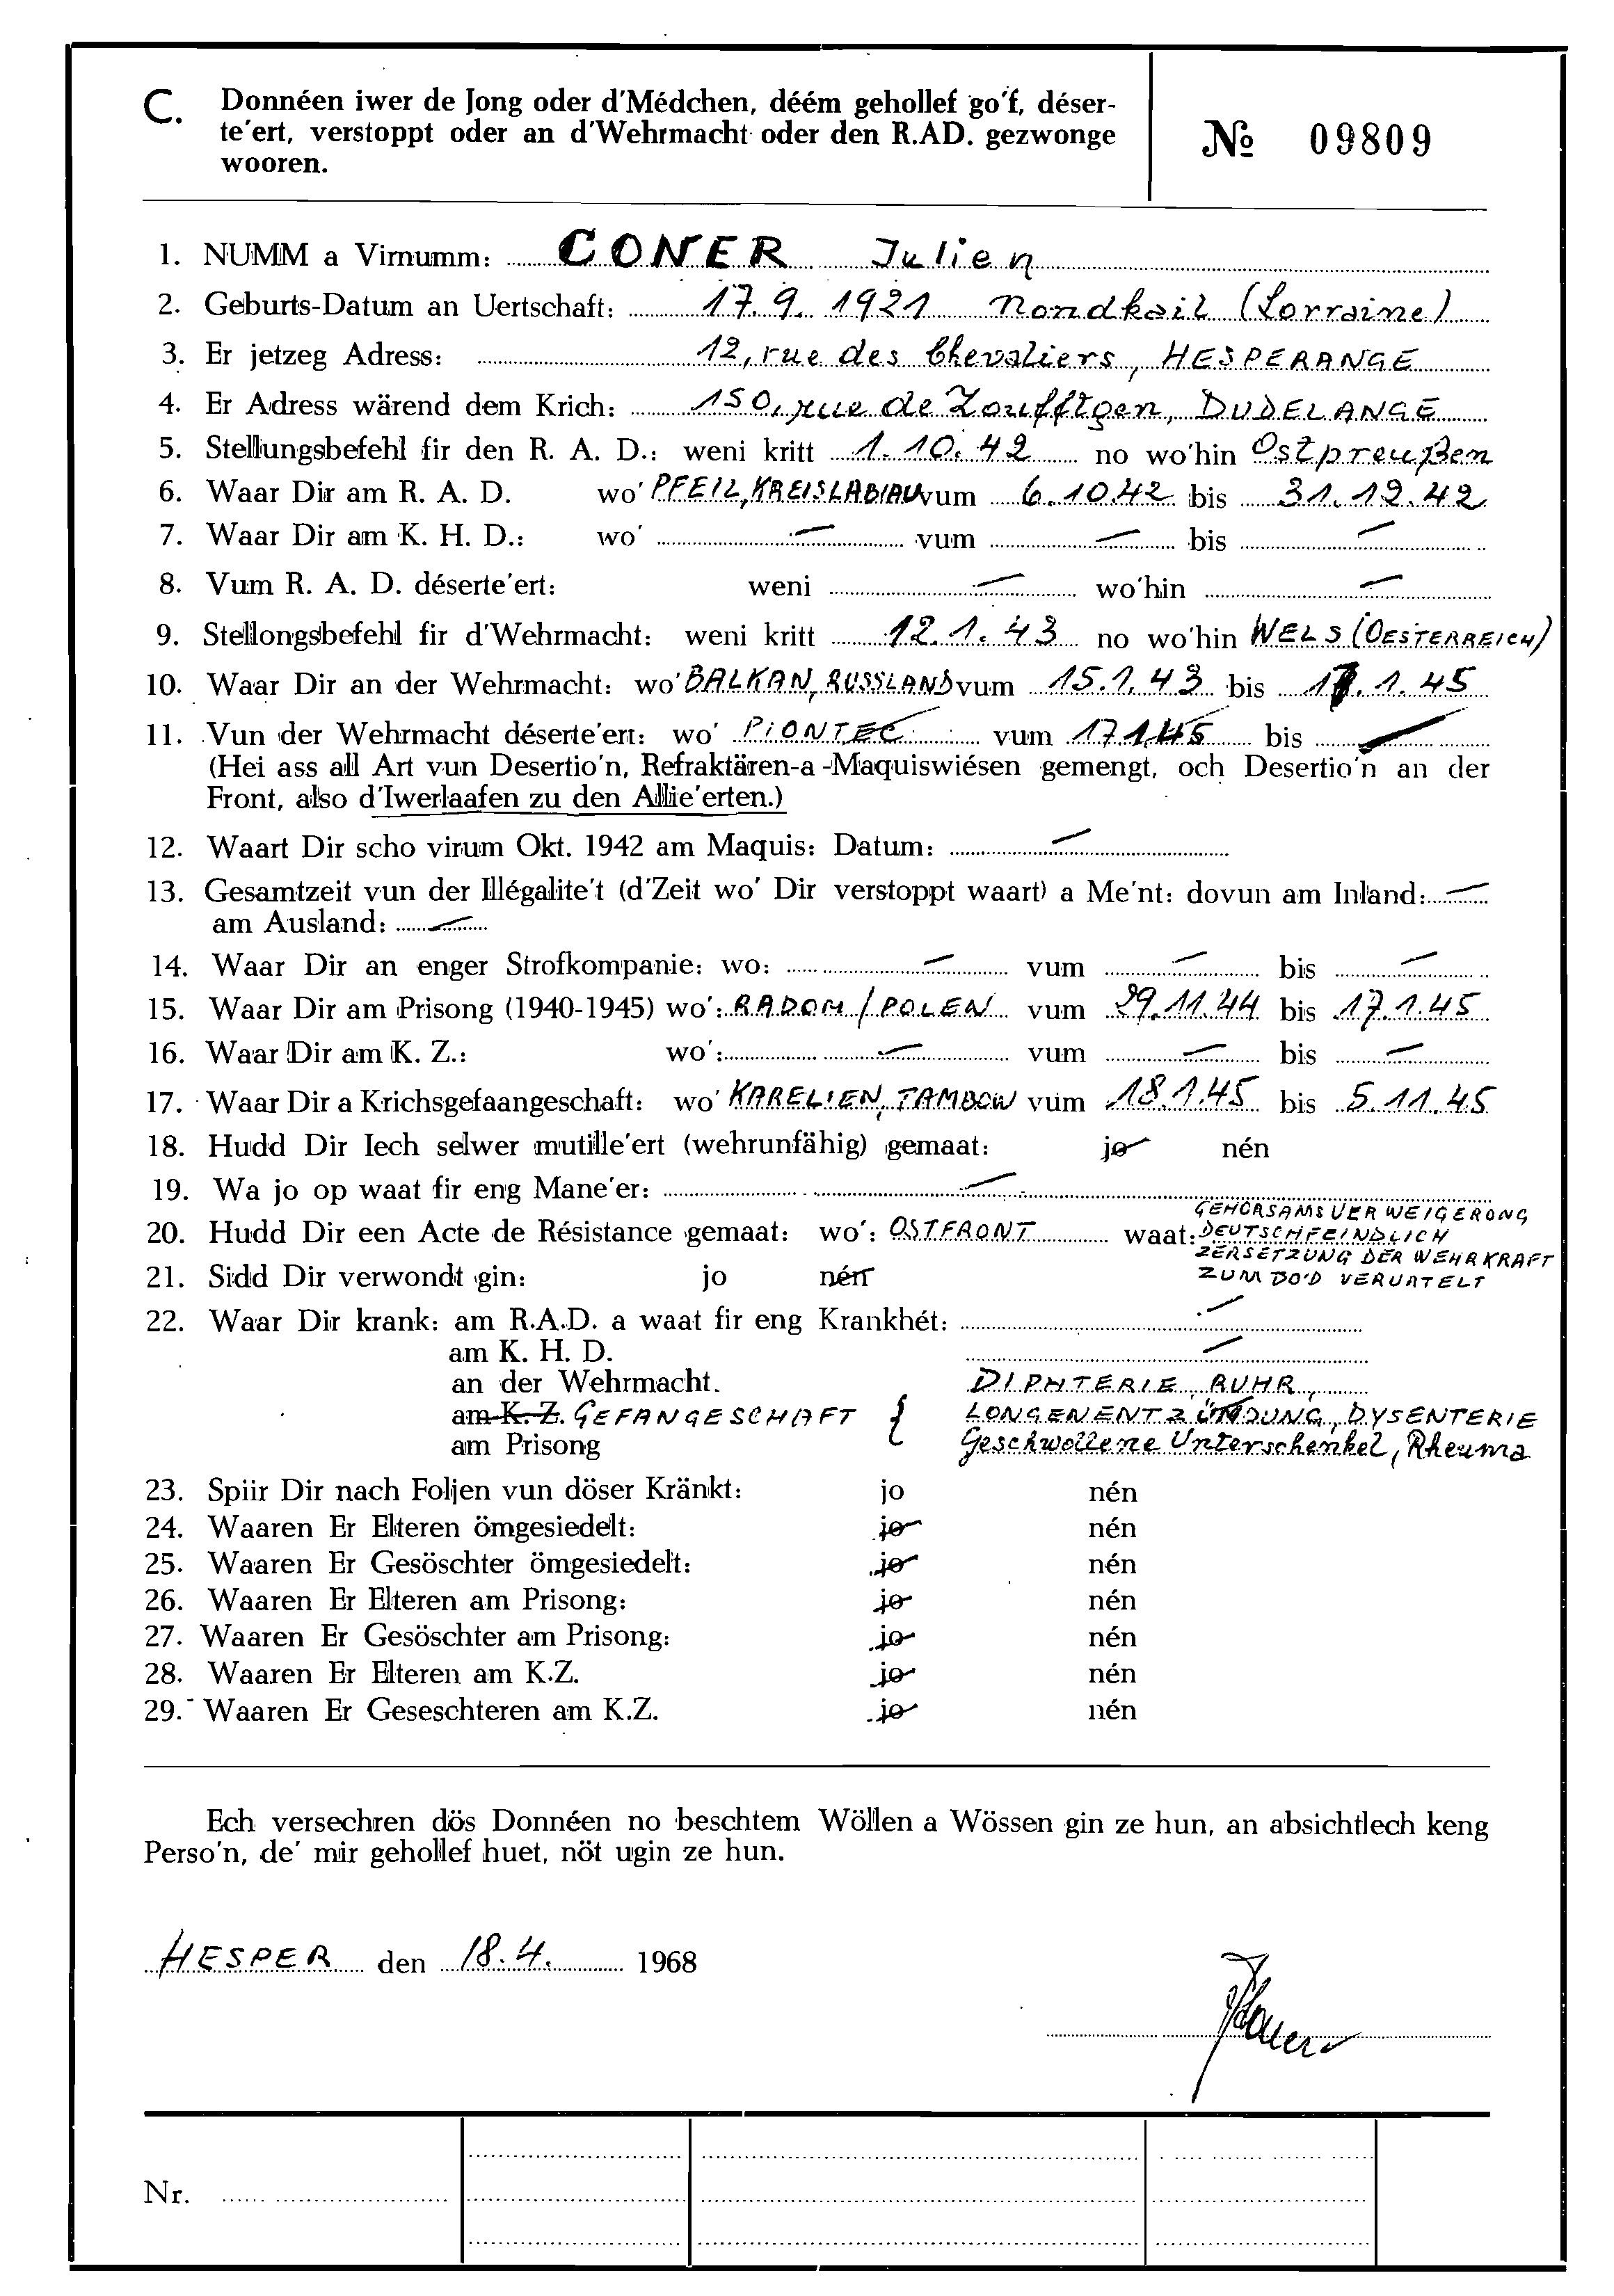 C. Donnéen iwer de Jong oder d'Médchen, déém gehollef go'f, déser-
te'ert, verstoppt oder an d'Wehrmacht oder den R.AD. gezwonge
wooren.
№ 09809
1. NUMM a Virnumm: CONER Julien
2. Geburts-Datum an Uertschaft: 17.9.1921 Nondkail (Lorraine)
3. Er jetzeg Adress: 12, rue des Chevaliers, HESPERANGE
4. Er Adress wärend dem Krich: 150, rue de Zoufftgen, DUDELANGE
5. Stellungsbefehl fir den R. A. D.: weni kritt 1.10.42 no wo'hin Ostpreußen
6. Waar Dir am R. A. D. wo' PFEIL, KREISLABIAU vum 6.10.42 bis 31.12.42
7. Waar Dir am K. H. D.: wo' — vum — bis —
8. Vum R. A. D. déserte'ert: weni — wo'hin —
9. Stellongsbefehl fir d'Wehrmacht: weni kritt 12.1.43 no wo'hin WELS (OESTERREICH)
10. Waar Dir an der Wehrmacht: wo' BALKAN, RUSSLAND vum 15.1.43 bis 17.1.45
11. Vun der Wehrmacht déserte'ert: wo' PIONTEC vum 17.1.45 bis —
(Hei ass all Art vun Desertio'n, Refraktären-a-Maquiswiésen gemengt, och Desertio'n an der
Front, also d'Iwerlaafen zu den Allie'erten.)
12. Waart Dir scho virum Okt. 1942 am Maquis: Datum: —
13. Gesamtzeit vun der Illégalite't (d'Zeit wo' Dir verstoppt waart) a Me'nt: dovun am Inland: —
am Ausland: —
14. Waar Dir an enger Strofkompanie: wo: — vum — bis —
15. Waar Dir am Prisong (1940-1945) wo': RADOM / POLEN vum 29.11.44 bis 17.1.45
16. Waar Dir am K. Z.: wo': — vum — bis —
17. Waar Dir a Krichsgefaangeschaft: wo' KARELIEN, TAMBOW vum 18.1.45 bis 5.11.45
18. Hudd Dir Iech selwer mutille'ert (wehrunfähig) gemaat: jo nén
19. Wa jo op waat fir eng Mane'er: —
20. Hudd Dir een Acte de Résistance gemaat: wo': OSTFRONT waat: GEHORSAMSVERWEIGERONG
DEUTSCHFEINDLICH
ZERSETZUNG DER WEHRKRAFT
ZUM DO'D VERURTELT
21. Sidd Dir verwondt gin: jo nén
22. Waar Dir krank: am R.A.D. a waat fir eng Krankhét: —
am K. H. D. —
an der Wehrmacht. DIPHTERIE, RUHR,
am K. Z. GEFANGESCHAFT { LONGENENTZÜNDUNG, DYSENTERIE
am Prisong Geschwollene Unterschenkel, Rheuma
23. Spiir Dir nach Foljen vun döser Kränkt: jo nén
24. Waaren Er Elteren ömgesiedelt: jo nén
25. Waaren Er Gesöschter ömgesiedelt: jo nén
26. Waaren Er Elteren am Prisong: jo nén
27. Waaren Er Gesöschter am Prisong: jo nén
28. Waaren Er Elteren am K.Z. jo nén
29. Waaren Er Geseschteren am K.Z. jo nén
Ech versechren dös Donnéen no beschtem Wöllen a Wössen gin ze hun, an absichtlech keng
Perso'n, de' mir gehollef huet, nöt ugin ze hun.
HESPER den 18.4. 1968
Nr.